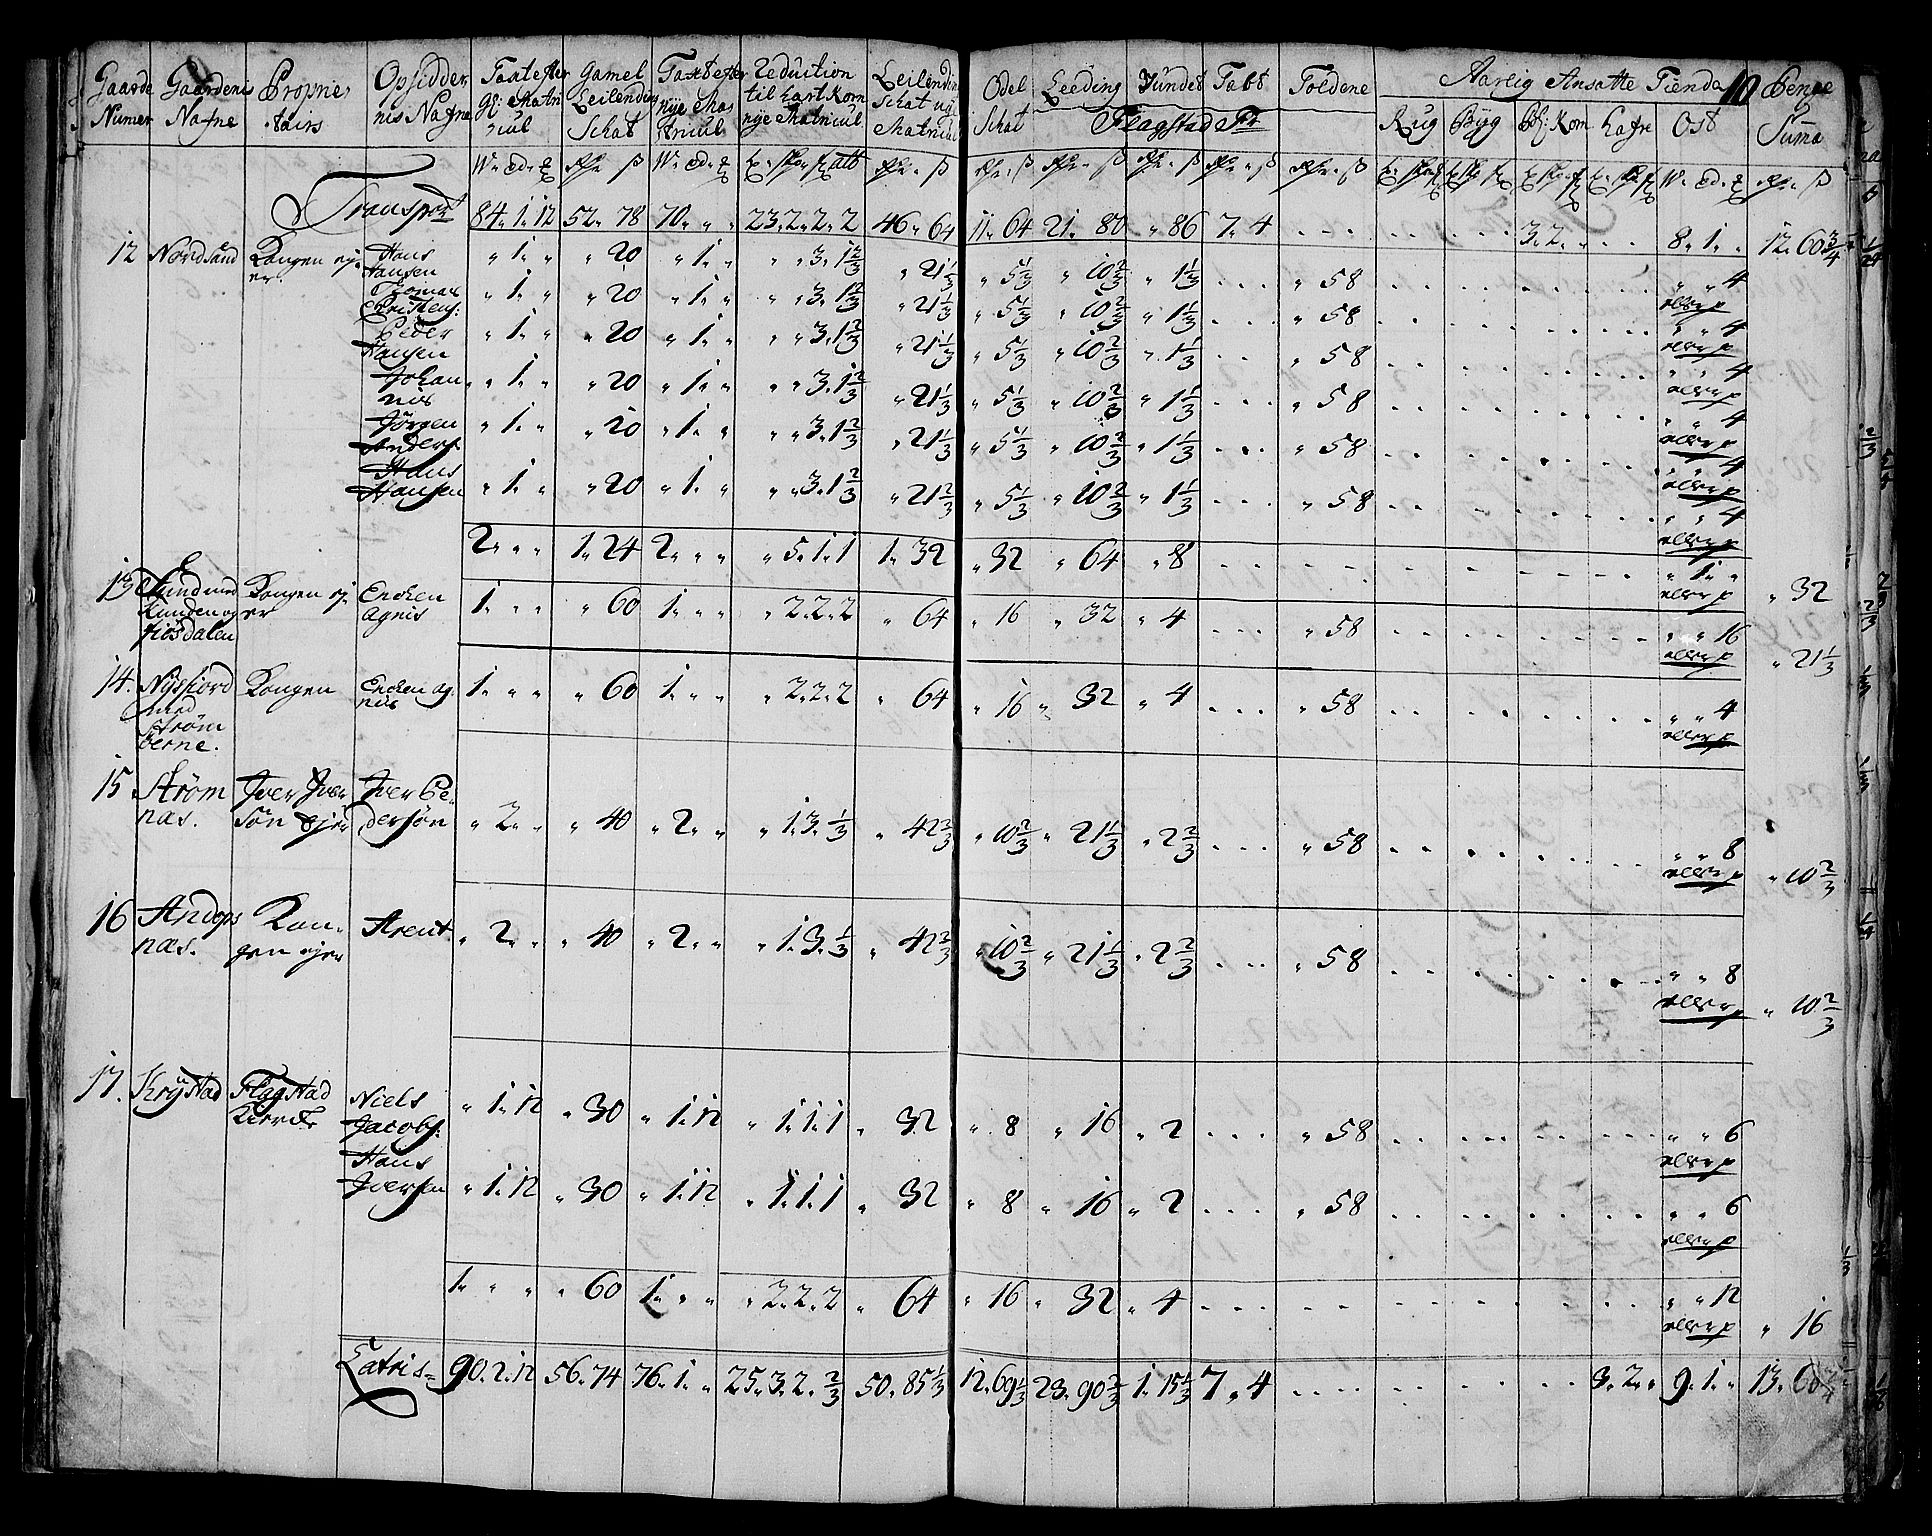 Gaarde Numer | Gaardens Nafne | Proprie- tairs | Opsidder nis Nafne | Taxt efter gl: Matri cul | Gamel Leilending Schat | Taxt efter nÿe Ma- tricul | Reduction til hartkorn nÿe Matricul | Leilending Schat nÿ Matricul | Odel Schat | Leeding | Vundet | Tabt | Foldene | Aarlig Ansatte Tiende 10 | Penge
Flagstad Pr | Rug | Byg | Bl: Korn | Hafre | Ost | Suma
Transport 84. 1. 12 | 52. 78 | 70. " . " | 23. 2. 2. 2 | 46. 64 | 11. 64 | 21. 80 | " 86 | 7. 4 | 3. 2. | 8. 1. " | 12. 60 3/4
12 Nordsund | Kongen ej- er. | Hans Hansen | " 1. " | " 20 | " 1. " | " " 3. 1 2/3 | " 21 1/3 | " 5 1/3 | " 10 2/3 | " 1 1/3 | " 58 | " " 4
Tomas Christens: | " 1. " | " 20 | " 1. " | " " 3. 1 2/3 | " 21 1/3 | " 5 1/3 | " 10 2/3 | " 1 1/3 | " 58 | " " 4
Peder Hansen | " 1. " | " 20 | " 1. " | " " 3. 1 2/3 | " 21 1/3 | " 5 1/3 | " 10 2/3 | " 1 1/3 | " 58 | " " 4
Johan nes | " 1. " | " 20 | " 1. " | " " 3. 1 2/3 | " 21 1/3 | " 5 1/3 | " 10 2/3 | " 1 1/3 | " 58 | " " 4
Jørgen Anders | " 1. " | " 20 | " 1. " | " " 3. 1 2/3 | " 21 1/3 | " 5 1/3 | " 10 2/3 | " 1 1/3 | " 58 | " " 4
Hans Hansen | " 1. " | " 20 | " 1. " | " " 3. 1 2/3 | " 21 2/3 | " 5 1/3 | " 10 2/3 | " 1 1/3 | " 58 | " " 4
2. " " | 1. 24 | 2. " " | " 5. 1. 1 | 1. 32 | " 32 | " 64 | " 8 | " 1. " | " 32
13 Sund med Kunden og fiosdalen | Kongen ej- er | Enchen Agnis | 1. " " | " 60 | 1. " " | " 2. 2. 2 | " 64 | " 16 | " 32 | " 4 | " 58 | " " 16 | " 21 1/3
14. Nysfiord med Strøm øerne. | Kongen | Enchen Ag- nis | 1. " " | " 60 | 1. " " | " 2. 2. 2 | " 64 | " 16 | " 32 | " 4 | " 58 | " " 4
15 Strøm næs. | Iver Iver Søn ejer | Iver Pe- dersøn | " 2. " | " 40 | " 2. " | " 1. 3. 1/3 | " 42 2/3 | " 10 2/3 | " 21 1/3 | " 2 2/3 | " 58 | " " 8 | " 10 2/3
16 Andops næs. | Kon- gen ejer | Arent | " 2. " | " 40 | " 2. " | " 1. 3. 1/3 | " 42 2/3 | " 10 2/3 | " 21 1/3 | " 2 2/3 | " 58 | " " 8 | " 10 2/3
17. Krÿstad | Flagstad Kierche | Niels Jacobs: | " 1. 12 | " 30 | " 1. 12 | " 1. 1. 1 | " 32 | " 8 | " 16 | " 2 | " 58 | " " 6
Hans Iversen | " 1. 12 | " 30 | " 1. 12 | " 1. 1. 1 | " 32 | " 8 | " 16 | " 2 | " 58 | " " 6
1. " " | " 60 | 1. " " | " 2. 2. 2 | " 64 | " 16 | " 32 | " 4 | " " 12 | " 16
Lateris= 90. 2. 12 | 56. 74 | 76. 1. " | 25. 3. 2. 2/3 | 50. 85 1/3 | 12. 69 1/3 | 23. 90 2/3 | 1. 15 1/3 | 7. 4 | 3. 2. " | 9. 1. " | 13. 60 3/4